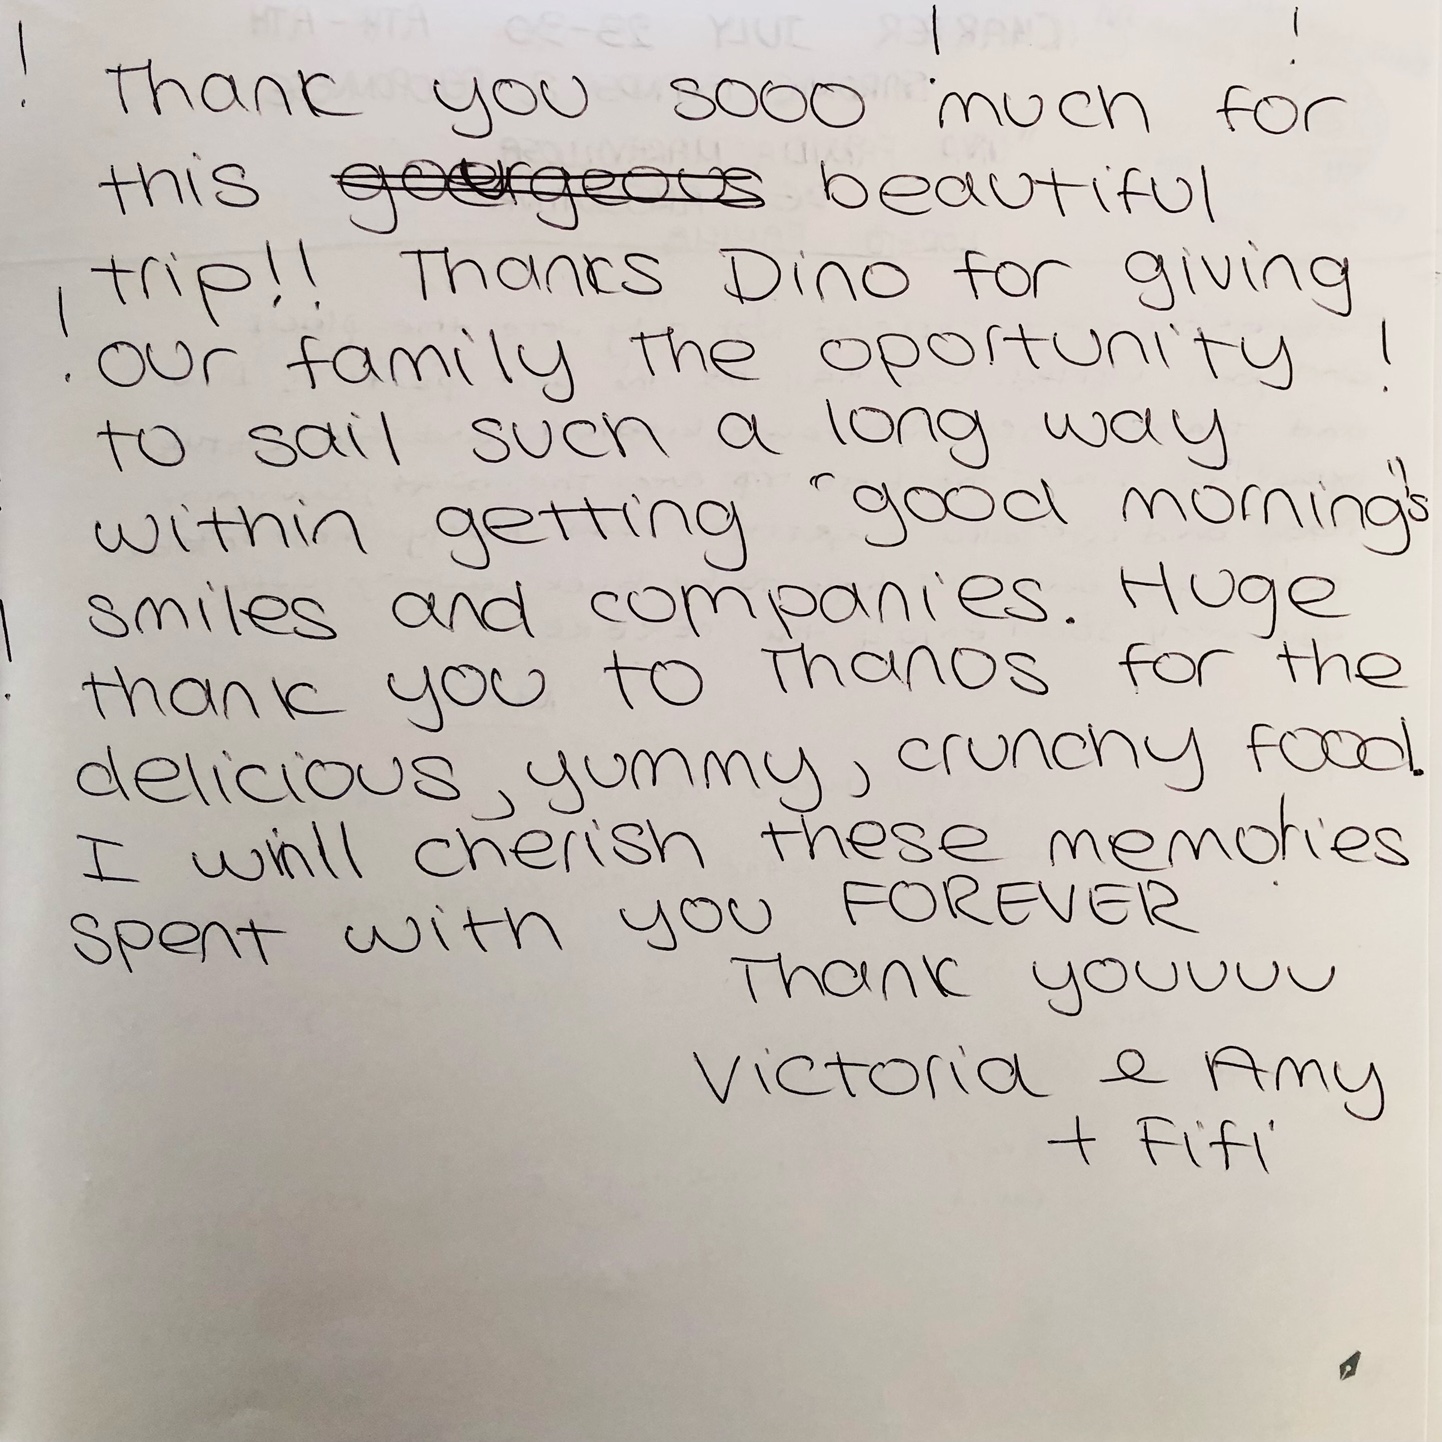 Thank you sooo much for
this beautiful
trip!! Thanks Dino for giving
our family the oportunity !
to sail such a long way
within getting "good morning's"
smiles and companies. Huge
thank you to Thanos for the
delicious, yummy, crunchy food.
I will cherish these memories
spent with you FOREVER
Thank youuuuu
Victoria e Amy
+ Fifi